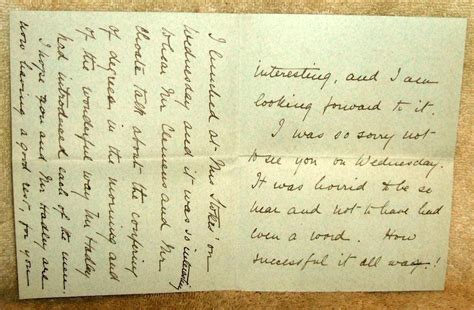 interesting, and I am
looking forward to it.
I was so sorry not
to see you on Wednesday.
It was horrid to be so
near and not to have had
even a word. How
successful it all was!
I lunched at Mrs Stokes' on
Wednesday and it was so interesting
to hear Mr Clemens and Mr
Choate talk about the confering
of degrees in the morning and
of the wonderful way Mr Hadley
had introduced each of the men.
I hope you and Mr Hadley are
now having a good rest, for you